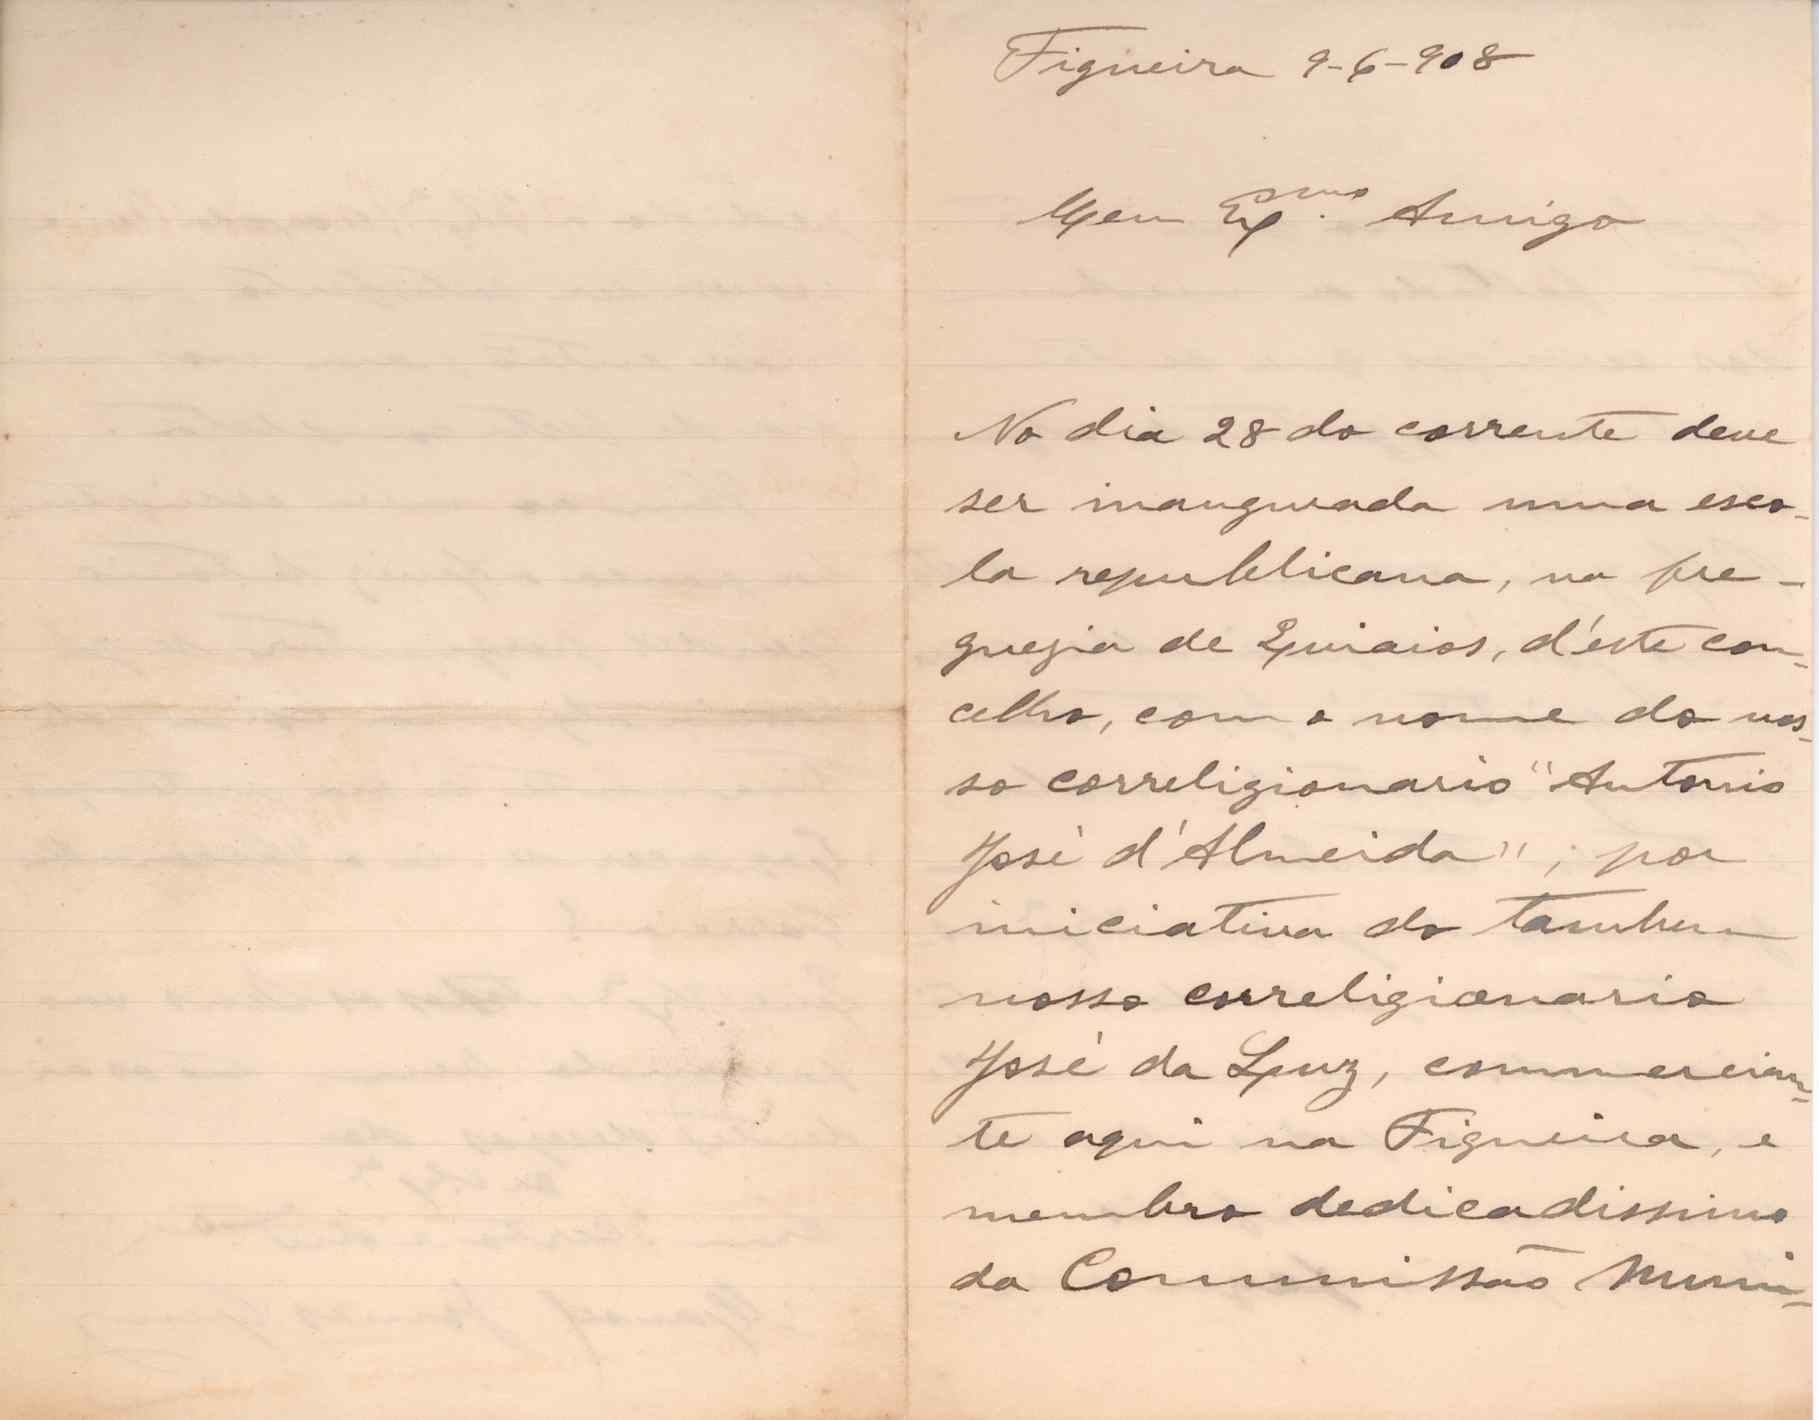 Figueira 9-6-908
Meu Exmo. Amigo
No dia 28 do corrente deve
ser inaugurada uma esco-
la republicana, na fre-
guezia de Quiaios, d'este con-
celho, com o nome do nos-
so correligionario "Antonio
José d'Almeida", por
iniciativa do tambem
nosso correligionario
José da Luz, commercian-
te aqui na Figueira, e
membro dedicadissimo
da Commissão Muni-